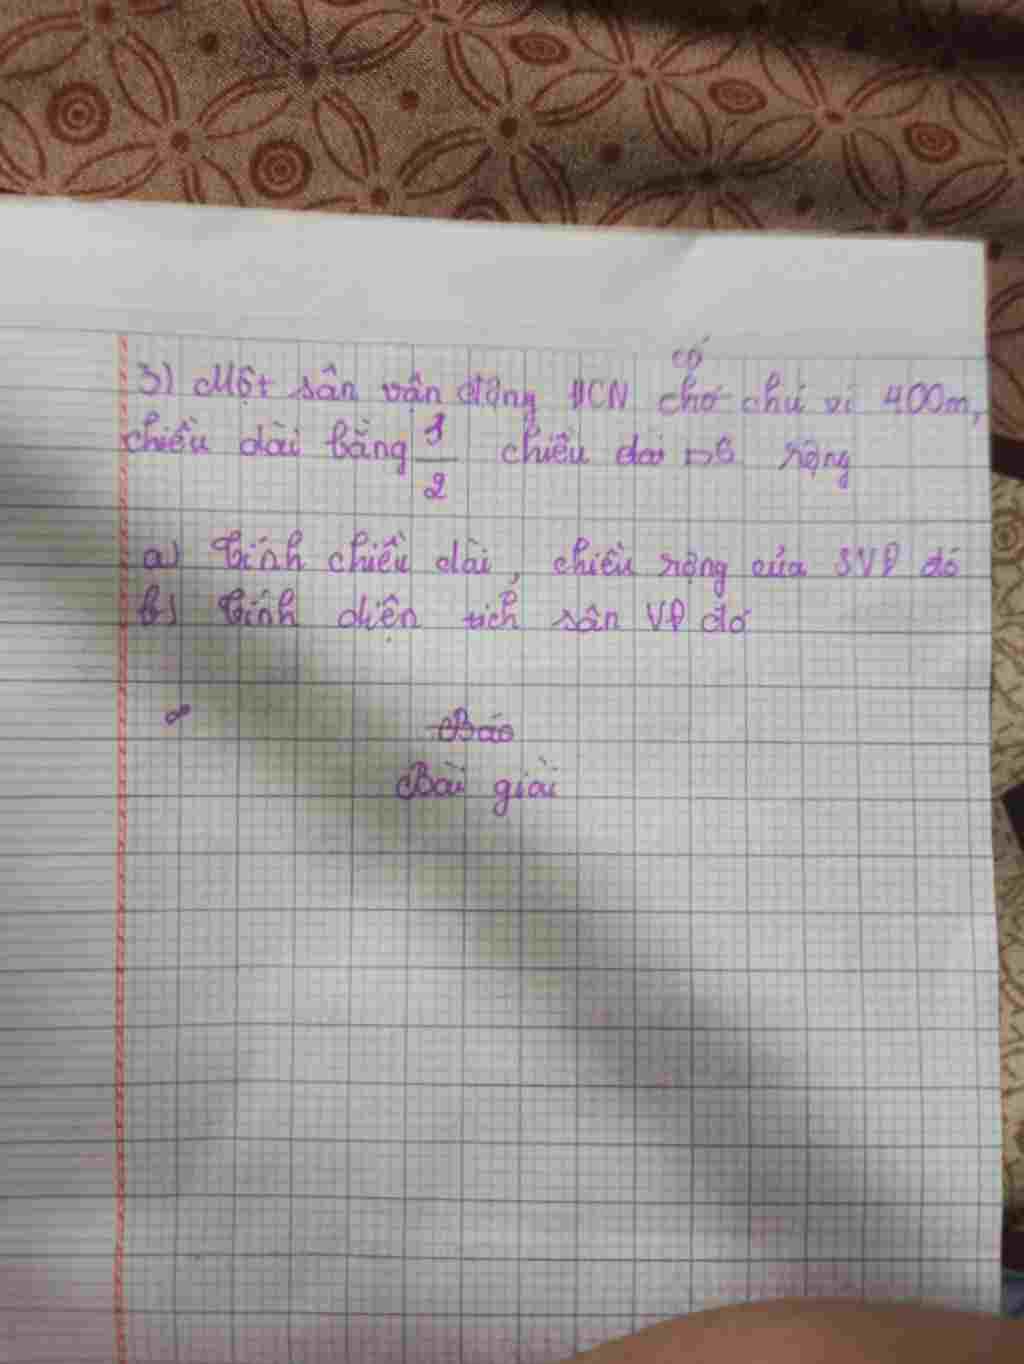 có
3) Một sân vận động HCN chó chu vi 400m,
chiều dài bằng 1/2 chiều dai rộng
a) Tính chiều dài, chiều rộng của SVĐ đó
b) Tính diện tích sân VĐ đó
Bài giải